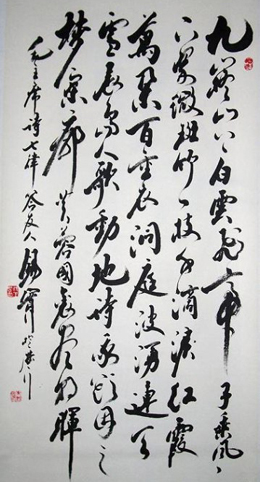 九嶷山上白雲飛帝子乘風
下翠微斑竹一枝千滴淚紅霞
萬朵百重衣洞庭波湧連天
雪長島人歌動地詩我欲因之
夢寥廓芙蓉國裏盡朝暉
毛主席詩七律答友人